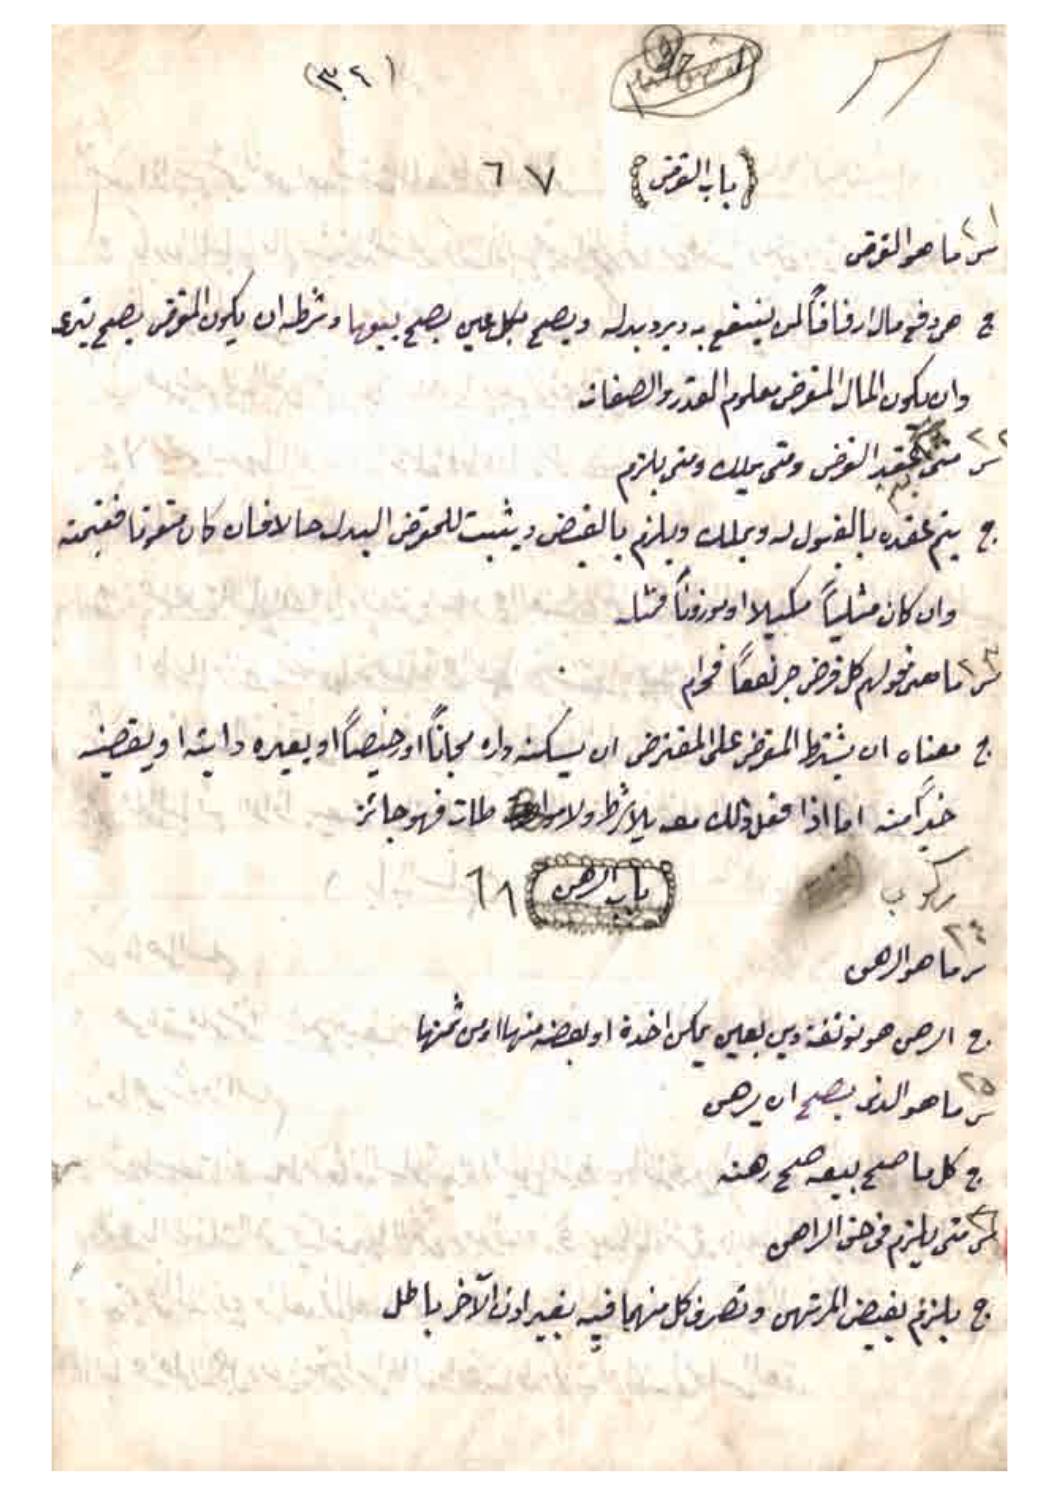 (٣٢)
(باب القرض) ٦٧
س٢١ ما هو القرض
ج هو دفع مال ارفاقاً لمن ينتفع به ويرد بدله ويصح بكل عين يصح بيعها وشرطه ان يكون المقرض يصح تبرعه
وان يكون المال المقرض معلوم القدر والصفات
س٢٢ متى يتم عقد القرض ومتى يملك ومتى يلزم
ج يتم عقده بالقبول له ويملك ويلزم بالقبض ويثبت للمقرض البدل حالا فان كان متقوما فقيمته
وان كان مثلياً مكيلا او موزوناً فمثله
س٢٣ ما معنى قولهم كل قرض جر نفعاً فحرام
ج معناه ان يشترط المقرض على المقترض ان يسكنه داره مجاناً او رخيصاً او يعيره دابته او يقضيه
خيراً منه اما اذا فعل ذلك معه بلا شرط ولا مواطات فهو جائز
ركوب
باب الرهن ٦٨
س٢٤ ما هو الرهن
ج الرهن هو توثقة دين بعين يمكن اخذه او بعضه منها او من ثمنها
س٢٥ ما هو الذي يصح ان يرهن
ج كل ما صح بيعه صح رهنه
س٢٦ متى يلزم في حق الراهن
ج يلزم بقبض المرتهن وتصرف كل منهما فيه بغير اذن الآخر باطل